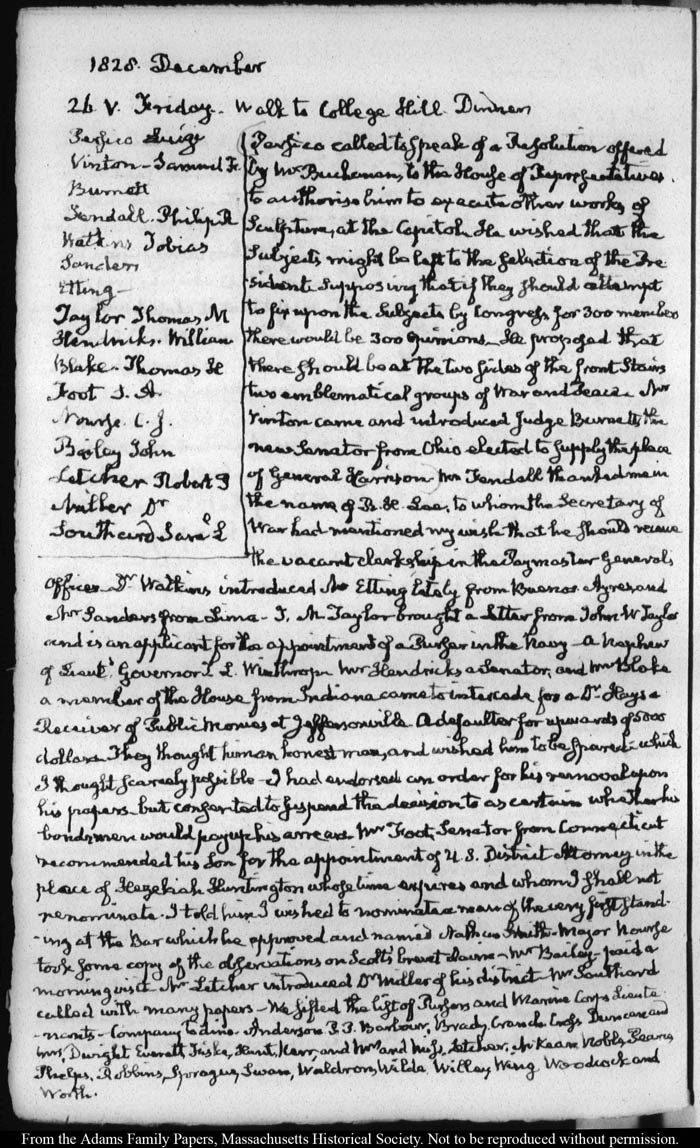 1828. December
26. V. Friday. Walk to College Hill. Dinner
Persico Luigi
Vinton - Samuel F.
Burnett
Fendall. Philip R
Watkins Tobias
Sanders
Etting -
Taylor Thomas M
Hendricks. William
Blake. Thomas H
Foot S. A.
Nourse. C. J.
Bailey John
Letcher Robert P
Miller Dr
Southard Saml. L
Persico called to speak of a Resolution offered
by Mr Buchanan, to the House of Representatives.
to authorise him to execute other works of
Sculpture, at the Capitol. He wished that the
Subjects might be left to the selection of the Pre-
sident supposing that if they should attempt
to fix upon the Subjects by Congress for 300 members
there would be 300 opinions. He proposed that
there should be at the two sides of the front Stairs
two emblematical groups of War and Peace. Mr
Vinton came and introduced Judge Burnett, the
new Senator from Ohio elected to supply the place
of General Harrison. Mr Fendall thanked me in
the name of R. H. Lee, to whom the Secretary of
War had mentioned my wish that he should receive
the vacant clerkship in the Paymaster General's
Office. Dr Watkins introduced Mr Etting lately from Buenos Ayres, and
Mr Sanders from Lima - T. M. Taylor brought a Letter from John W Taylor
and is an applicant for the appointment of a Purser in the Navy - A Nephew
of Lieutt. Governor T. L. Winthrop. Mr Hendricks a Senator, and Mr Blake
a member of the House from Indiana came to intercede for a Dr Hays a
Receiver of Public Monies at Jeffersonville. A defaulter for upwards of 5000
dollars. They thought him an honest man, and wished him to be spared - which
I thought scarcely possible - I had endorsed an order for his removal upon
his papers but consented to suspend the decision to ascertain whether his
bondsmen would pay up his arrears. Mr Foot, Senator from Connecticut
recommended his Son for the appointment of U. S. District Attorney in the
place of Hezekiah Huntington whose time expires and whom I shall not
renominate. I told him I wished to nominate a man of the very first stand-
-ing at the Bar which he approved and named Nathan Smith - Major Nourse
took some copy of the observations on Scott's brevet claim - Mr Bailey - paid a
morning visit. Mr Letcher introduced Dr Miller of his district - Mr Southard
called with many papers - We sifted the list of Pursers and Marine Corps Lieute-
-nants - Company to dine. Anderson, P. P. Barbour, Brady, Cranch, Crofs Duncan and
Mrs, Dwight Everett, Fiske, Hunt, Kerr, and Mrs and Miss, Letcher, McKean Noble, Pearce
Phelps, Robbins, Sprague, Swan, Waldron, Wilde, Willey Wing Woodcock and
Worth.
From the Adams Family Papers, Massachusetts Historical Society. Not to be reproduced without permission.